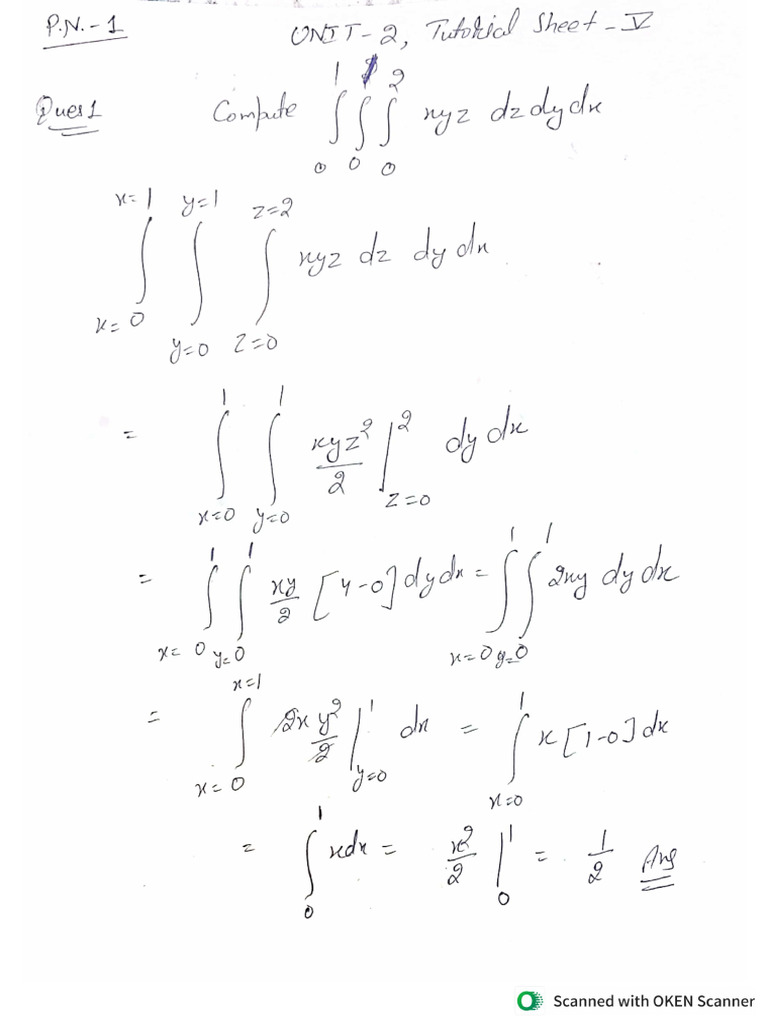 P.N.-1
UNIT-2, Tutorial Sheet-V
Ques 1 Compute ∫₀¹ ∫₀¹ ∫₀² xyz dz dy dx
∫_{x=0}^{x=1} ∫_{y=0}^{y=1} ∫_{z=0}^{z=2} xyz dz dy dx
= ∫_{x=0}^{1} ∫_{y=0}^{1} xyz²/2 |_{z=0}^{2} dy dx
= ∫_{x=0}^{1} ∫_{y=0}^{1} xy/2 [4-0] dy dx = ∫_{x=0}^{1} ∫_{y=0}^{1} 2xy dy dx
= ∫_{x=0}^{x=1} 2x y²/2 |_{y=0}^{1} dx = ∫_{x=0}^{1} x [1-0] dx
= ∫₀¹ x dx = x²/2 |₀¹ = 1/2 Ans
Scanned with OKEN Scanner